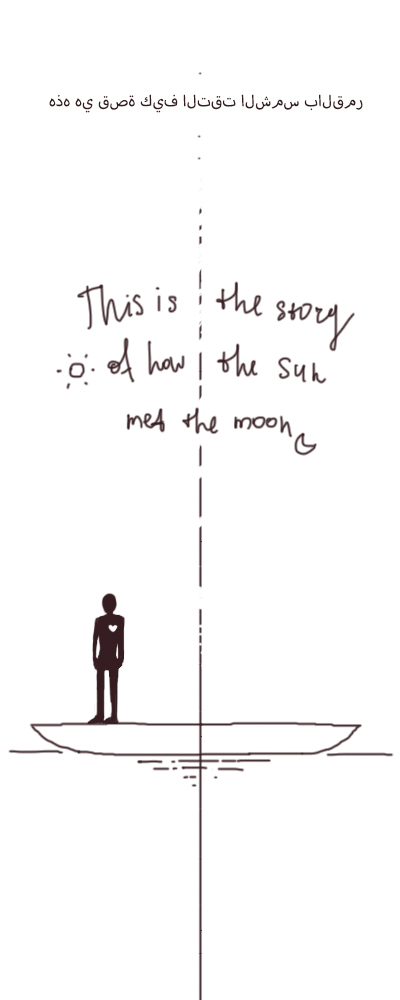 هذه هي قصة كيف التقت الشمس بالقمر
This is the story
of how the sun
met the moon